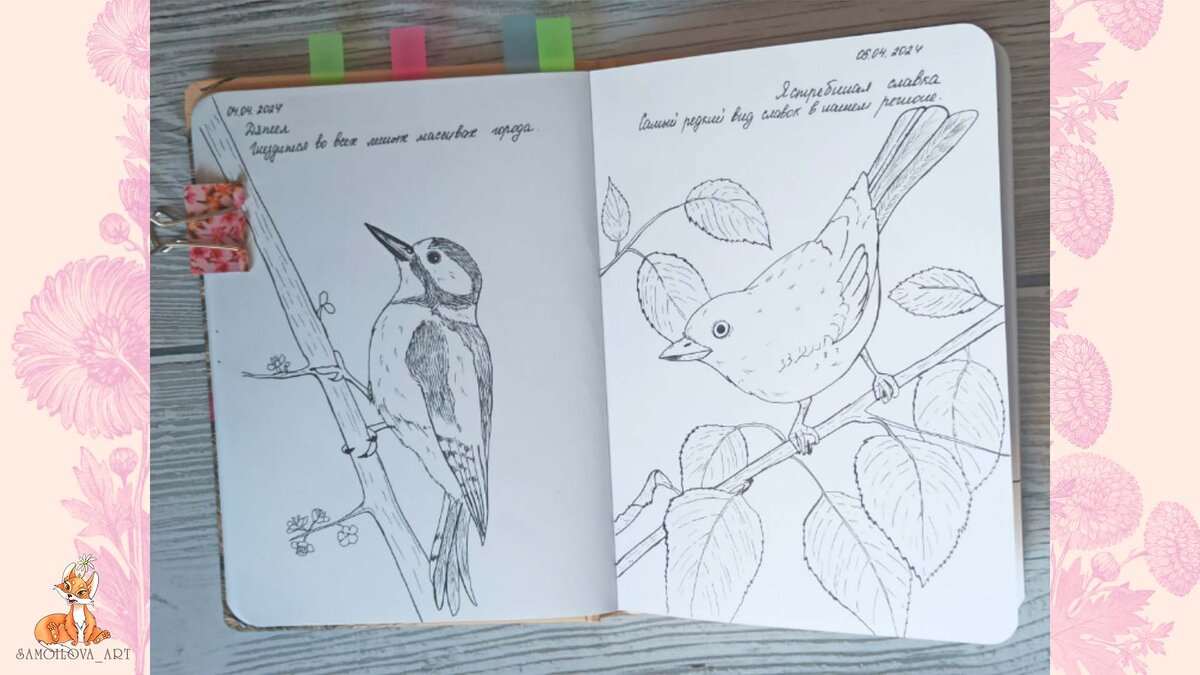 04.04.2024
Дятел
Гнездится во всех лесных массивах города.
05.04.2024
Ястребиная славка
Самый редкий вид славок в нашем регионе.
SAMOILOVA_ART